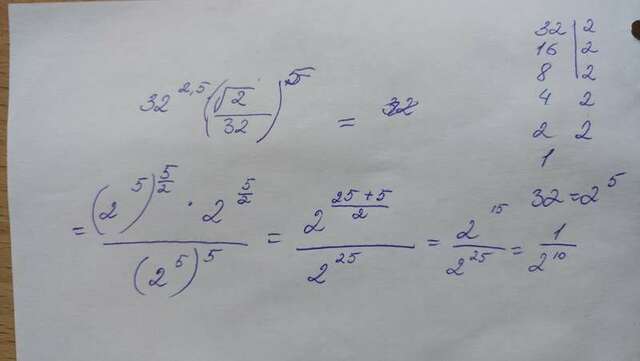 32^{2,5} (\frac{\sqrt{2}}{32})^5 =
= \frac{(2^5)^{\frac{5}{2}} · 2^{\frac{5}{2}}}{(2^5)^5} = \frac{2^{\frac{25+5}{2}}}{2^{25}} = \frac{2^{15}}{2^{25}} = \frac{1}{2^{10}}
32 | 2
16 | 2
8 | 2
4 2
2 2
1
32 = 2^5